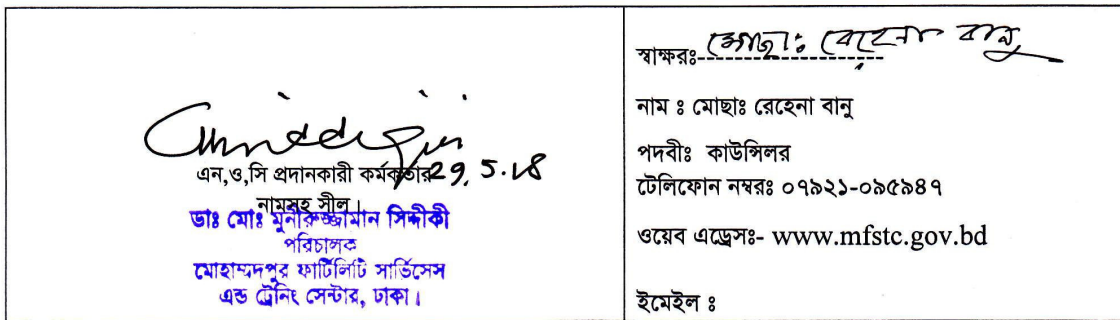 এন,ও,সি প্রদানকারী কর্মকর্তার 29.5.18
নামসহ সীল।
ডাঃ মোঃ মুনীরুজ্জামান সিদ্দীকী
পরিচালক
মোহাম্মদপুর ফার্টিলিটি সার্ভিসেস
এন্ড ট্রেনিং সেন্টার, ঢাকা।
স্বাক্ষরঃ মোছাঃ রেহেনা বানু
নাম ঃ মোছাঃ রেহেনা বানু
পদবীঃ কাউন্সিলর
টেলিফোন নম্বরঃ ০৭৯২১-০৯৫৯৪৭
ওয়েব এড্রেসঃ- www.mfstc.gov.bd
ইমেইল ঃ